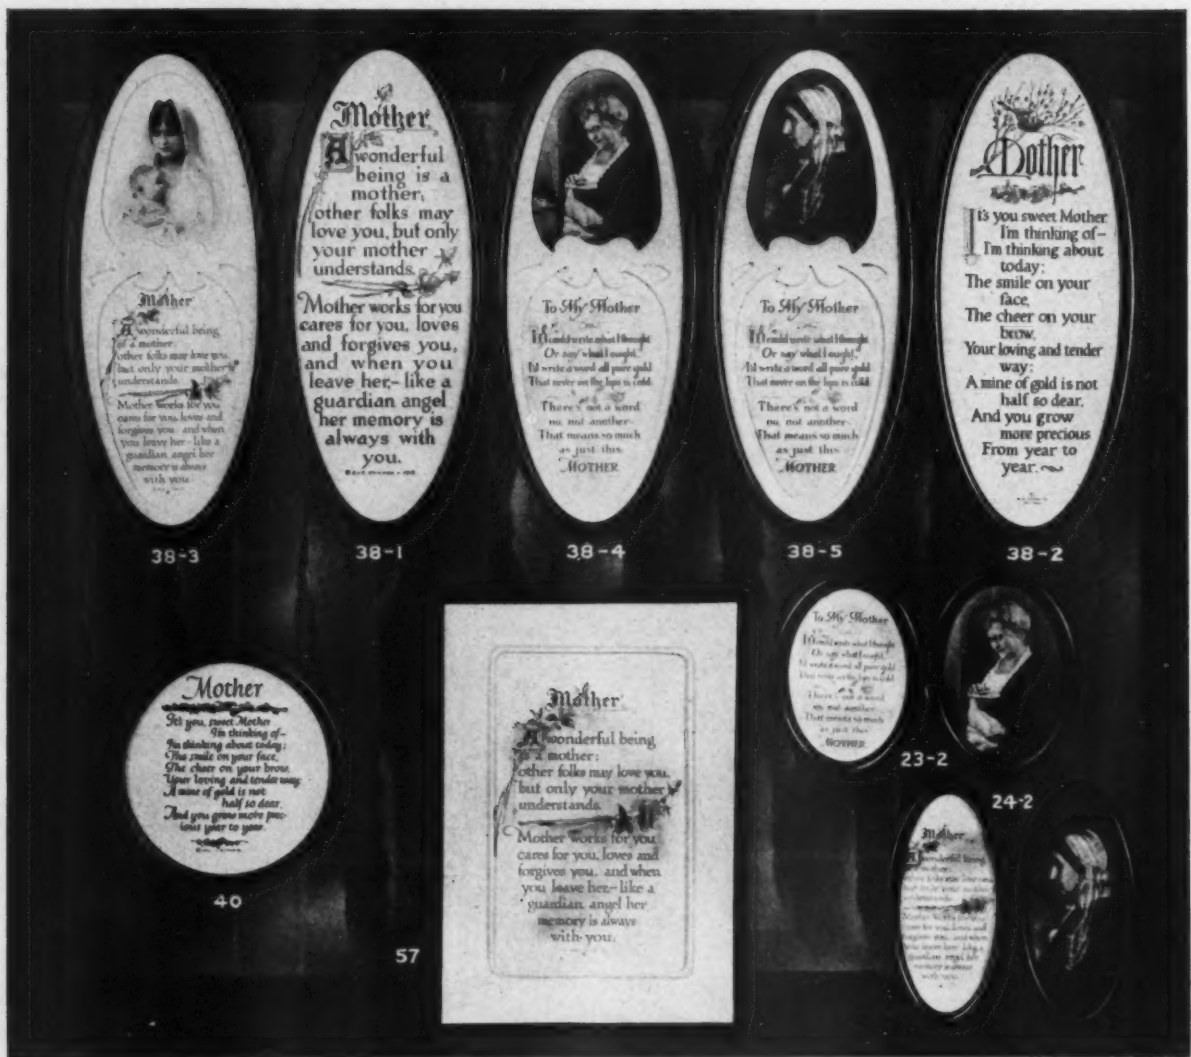 Mother
A wonderful being
of a mother
other folks may love you,
but only your mother
understands.
Mother works for you
cares for you, loves and
forgives you, and when
you leave her - like a
guardian angel her
memory is always
with you
38-3
Mother
A wonderful
being is a
mother;
other folks may
love you, but only
your mother
understands.
Mother works for you
cares for you, loves
and forgives you,
and when you
leave her,- like a
guardian angel
her memory is
always with
you.
38-1
To My Mother
If I could write what I thought
Or say what I ought,
I'd write a word all pure gold
That never on the lips is cold
There's not a word
no, not another-
That means so much
as just this
MOTHER
38-4
To My Mother
If I could write what I thought
Or say what I ought,
I'd write a word all pure gold
That never on the lips is cold
There's not a word
no, not another-
That means so much
as just this
MOTHER
38-5
Mother
It's you sweet Mother
I'm thinking of-
I'm thinking about
today:
The smile on your
face,
The cheer on your
brow,
Your loving and tender
way:
A mine of gold is not
half so dear,
And you grow
more precious
From year to
year.
38-2
Mother
It's you, sweet Mother
I'm thinking of-
I'm thinking about today:
The smile on your face,
The cheer on your brow,
Your loving and tender way
A mine of gold is not
half so dear,
And you grow more prec-
ious year to year.
40
Mother
A wonderful being
is a mother;
other folks may love you,
but only your mother
understands.
Mother works for you
cares for you, loves and
forgives you, and when
you leave her,- like a
guardian angel her
memory is always
with you.
57
To My Mother
If I could write what I thought
Or say what I ought,
I'd write a word all pure gold
That never on the lips is cold
There's not a word
no, not another-
That means so much
as just this
MOTHER
23-2
24-2
Mother
A wonderful being